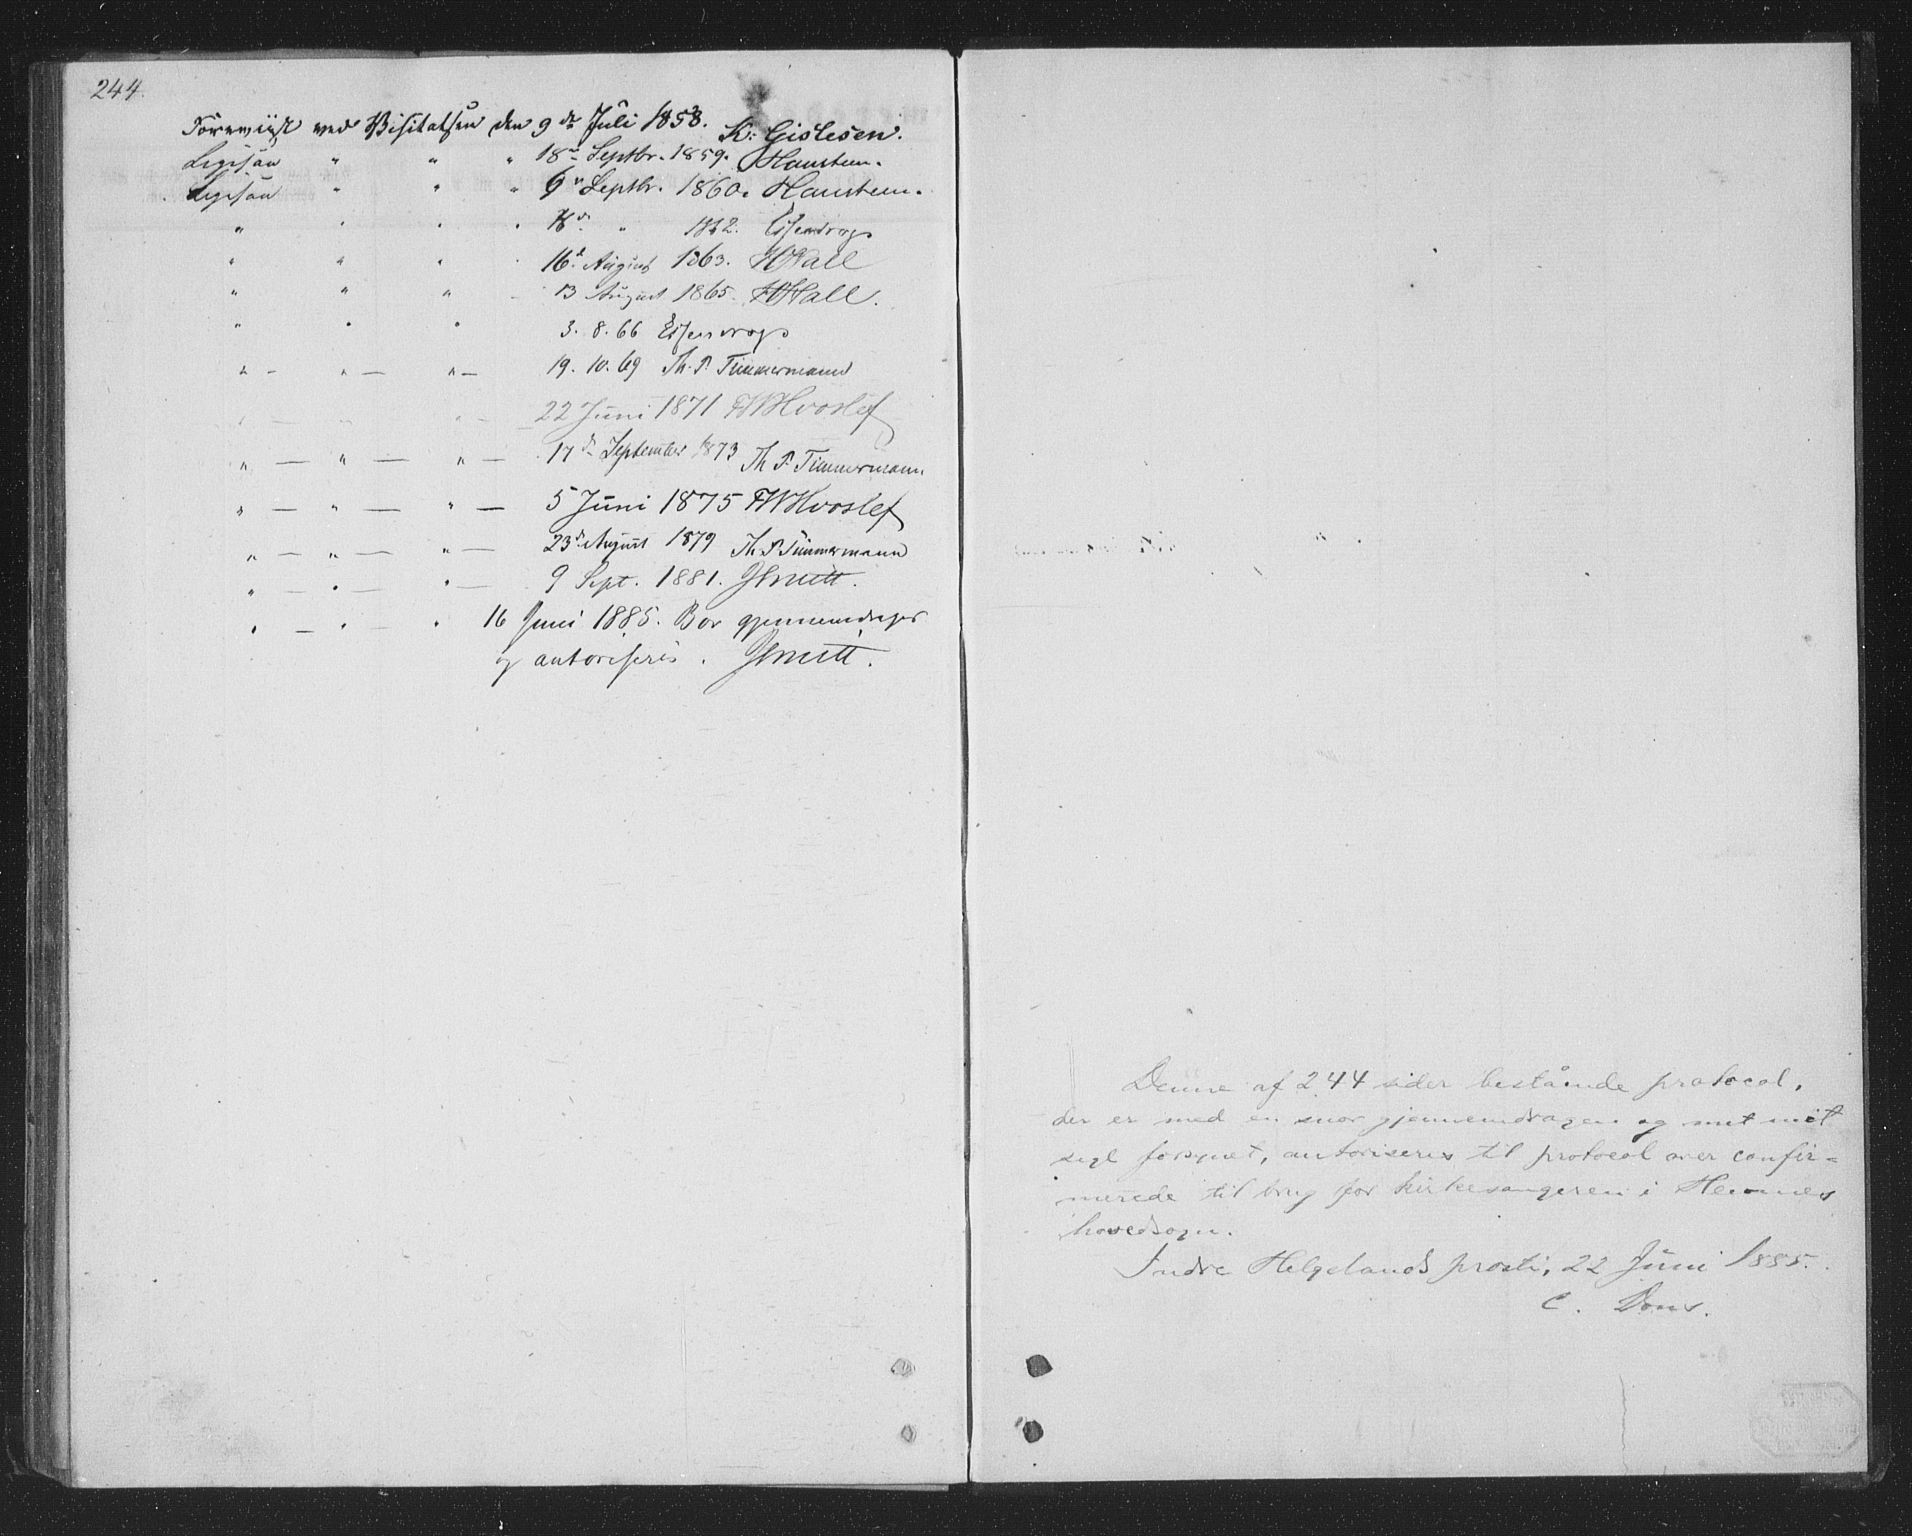 244.
Foreviist ved Visitatsen den 9de Juli 1858. K: Gislesen.
Ligesaa " " " 18de Septbr. 1859. Haustein.
Ligesaa " " " 6te Septbr. 1860. Haustein.
" " " " 18de " 1862. Eisendrog
" " " 16de August 1863. HHall
" " " 13 August 1865. HHall.
" " " 3. 8. 66
" — " — " — 19. 10. 69 Th. P. Timmermann
" — 22 Juni 1871 FWHvoslef
" — " — " — 17de September 1873 Th P. Timmermann
" — " — " — 5 Juni 1875 FWHvoslef
" — " — " — 23de August 1879 Th. P. Timmermann
" — " — " — 9 Sept. 1881. JSmitt.
" — " — " 16 Juni 1885. Bør gjennemdrages
og autoriseres. JSmitt.
Denne af 244 sider bestående protocol,
der er med en snor gjennemdragen og met mit
segl forsynet, autoriseres til protocol over confir=
merede til brug for kirkesangeren i Hemnes
hovedsogn.
Indre Helgelands prosti, 22 Juni 1885.
C. Dons.